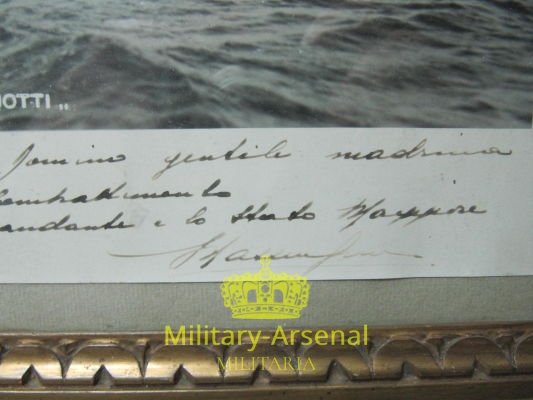 IOTTI „
gentile madrina
combattimento
andante e lo Stato Maggiore
Military-Arsenal
MILITARIA